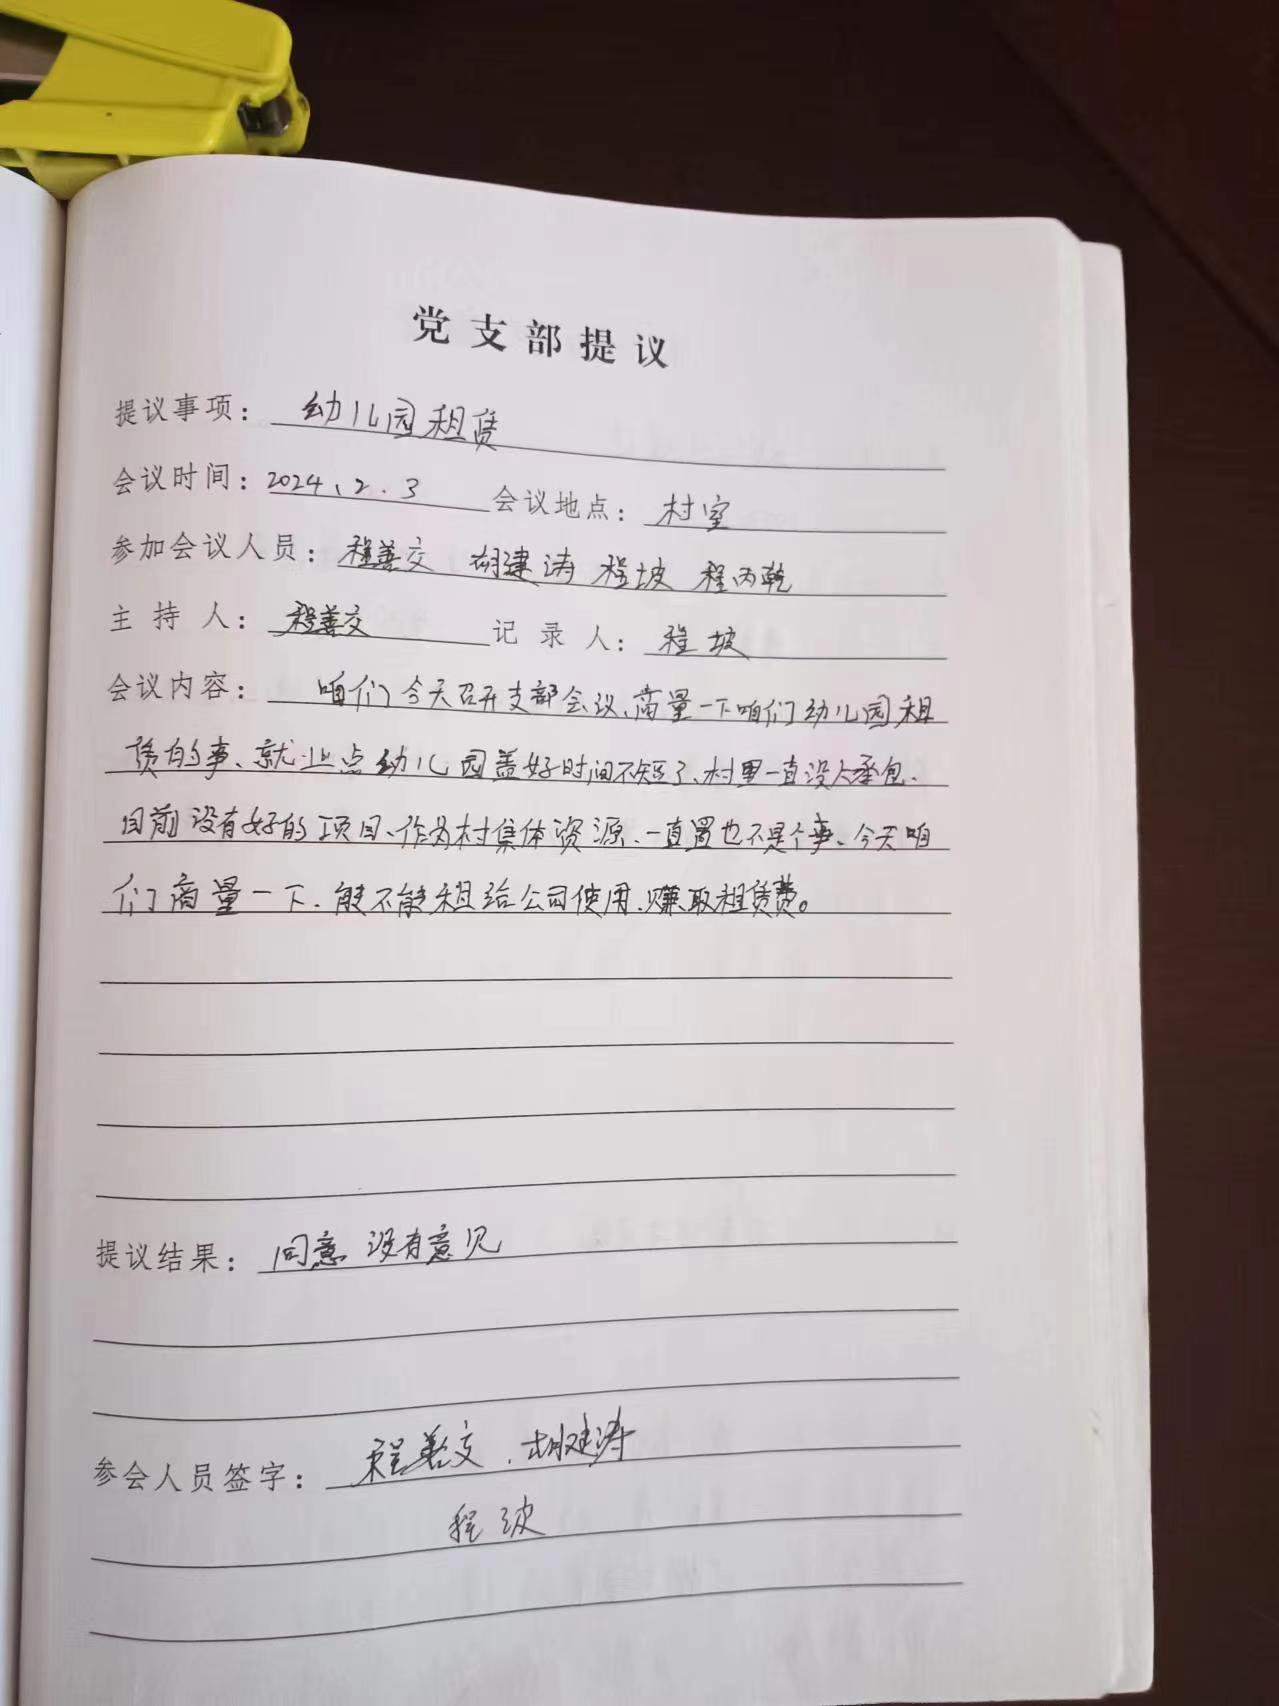 党支部提议
提议事项：幼儿园租赁
会议时间：2024、2.3 会议地点：村室
参加会议人员：程善交 胡建涛 程坡 程丙乾
主持人：程善交 记录人：程坡
会议内容：咱们今天召开支部会议、商量一下咱们幼儿园租
赁的事、就业点幼儿园盖好时间不短了、村里一直没人承包、
目前没有好的项目、作为村集体资源、一直置也不是个事、今天咱
们商量一下、能不能租给公司使用、赚取租赁费。
提议结果：同意 没有意见
参会人员签字：程善交、胡建涛
程坡